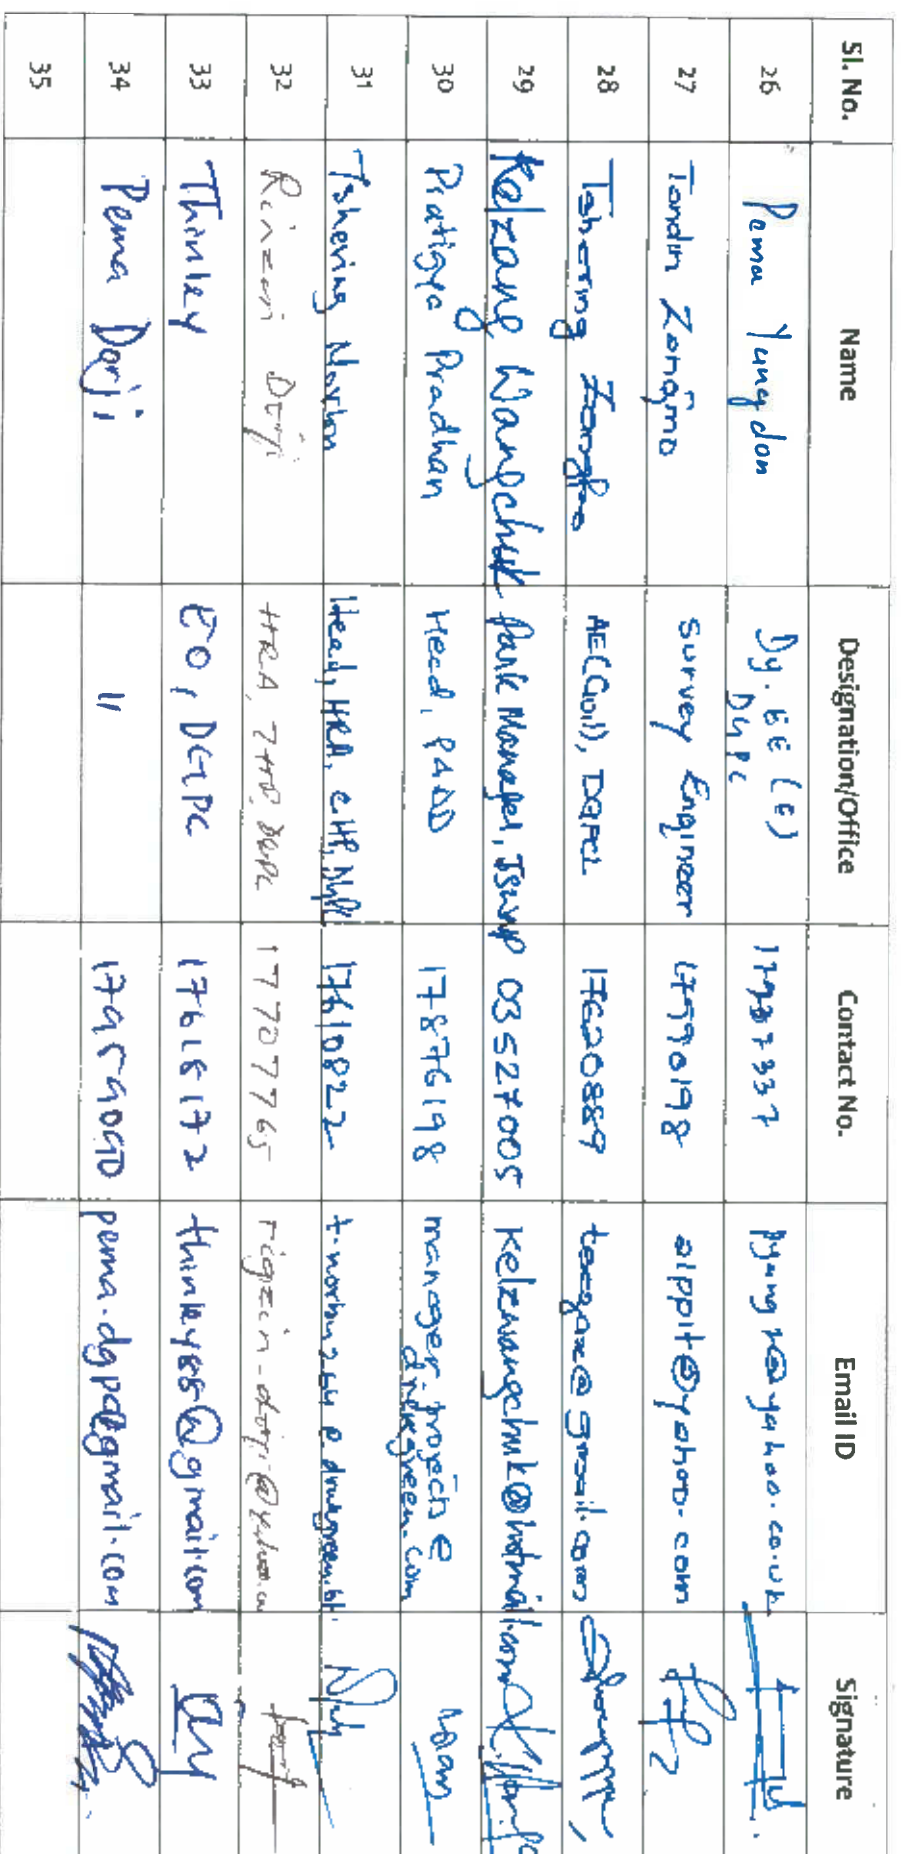 Sl. No. Name Designation/Office Contact No. Email ID Signature
26 Pema Yungdon Dy. EE (E) DGPC pyung2@yahoo.co.uk
27 Tandin Zongmo Survey Engineer 17590198 alppit@yahoo.com
28 Tshering Zangmo AE(Civil), DGPC 17620889
29 Kelzang Wangchuk Park Manager, JSWNP 03527005 kelzwangchuk@hotmail.com
30 Pratigya Pradhan Head, PADD 17876198 manager.projects@drukgreen.com
31 Tshering Norbu Head, HRA, CHP, DGPC 17610822 t.norbu264@drukgreen.bt
32 Rinzin Dorji HRA, THP, DGPC 17707765
33 Thinley EO, DGPC 17618172 thinley88@gmail.com
34 Pema Dorji " pema.dgpc@gmail.com
35